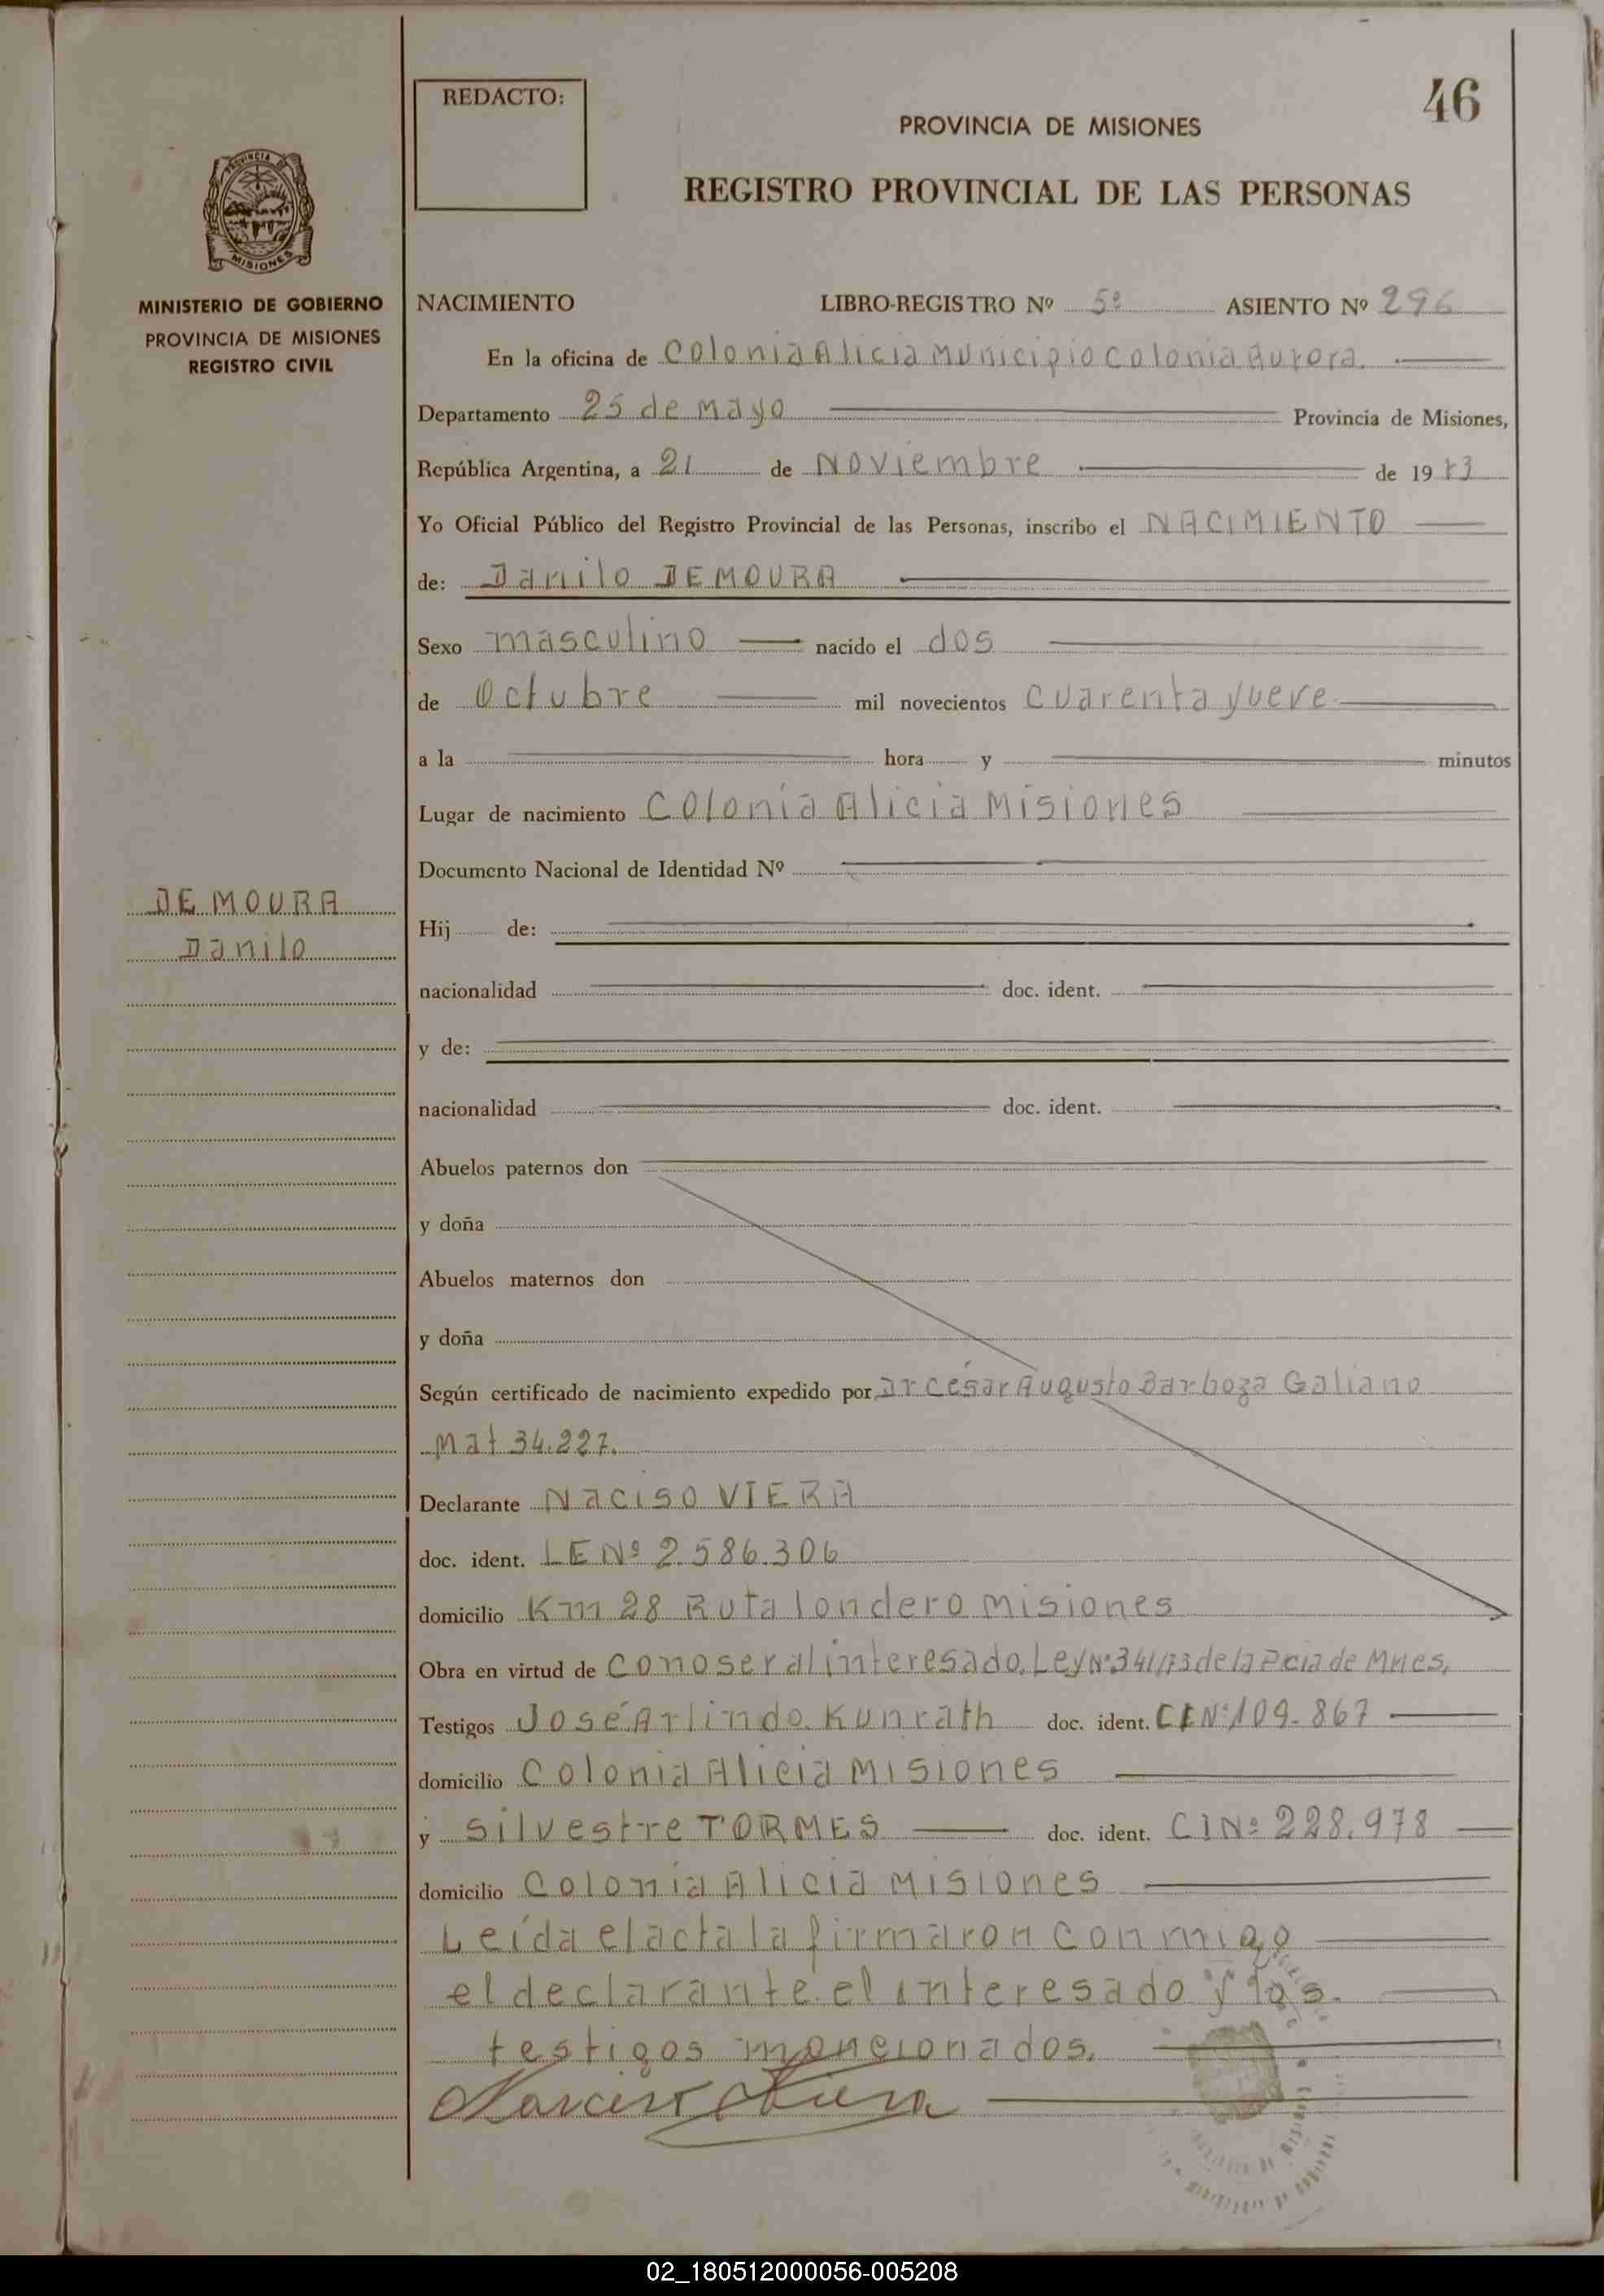 46
REDACTO:
PROVINCIA DE MISIONES
REGISTRO PROVINCIAL DE LAS PERSONAS
PROVINCIA DE
MISIONES
MINISTERIO DE GOBIERNO
PROVINCIA DE MISIONES
REGISTRO CIVIL
NACIMIENTO LIBRO-REGISTRO Nº 5º ASIENTO Nº 296
En la oficina de Colonia Alicia Municipio Colonia Aurora.
Departamento 25 de Mayo Provincia de Misiones,
República Argentina, a 21 de Noviembre de 1973
Yo Oficial Público del Registro Provincial de las Personas, inscribo el NACIMIENTO
de: Danilo DE MOURA
Sexo masculino nacido el dos
de Octubre mil novecientos cuarenta yueve
a la hora y minutos
Lugar de nacimiento Colonia Alicia Misiones
Documento Nacional de Identidad Nº
DE MOURA
Danilo
Hij de:
nacionalidad doc. ident.
y de:
nacionalidad doc. ident.
Abuelos paternos don
y doña
Abuelos maternos don
y doña
Según certificado de nacimiento expedido por Dr César Augusto Barboza Galiano
Mat 34.227.
Declarante Naciso VIERA
doc. ident. LE Nº 2.586.306
domicilio Km 28 Ruta londero Misiones
Obra en virtud de Conoser al interesado. Ley Nº 341/73 de la Pcia de Mnes.
Testigos José Arlindo Kunrath doc. ident. CI Nº 109.867
domicilio Colonia Alicia Misiones
y Silvestre TORMES doc. ident. CI Nº 228.978
domicilio Colonia Alicia Misiones
Leída el acta la firmaron con migo
el declarante el interesado y los
testigos moncionados.
Narciso Viera
02_180512000056-005208